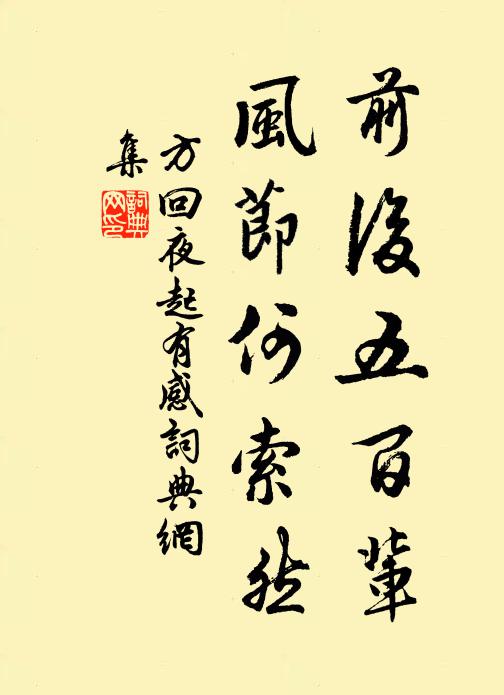 前後五百輩
風節何索然
方回夜起有感詞典網
集
詞典
网印